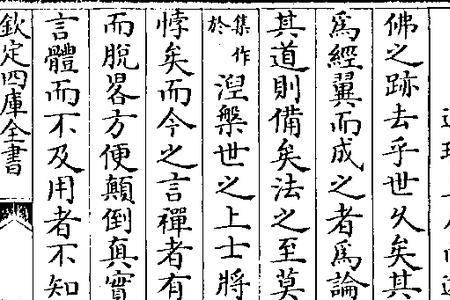 佛之跡去乎世久矣其
為經翼而成之者為論
其道則備矣法之至莫
集作於涅槃世之上士將
悖矣而今之言禪者有
而脱畧方便顛倒真實
言體而不及用者不知
欽定四庫全書